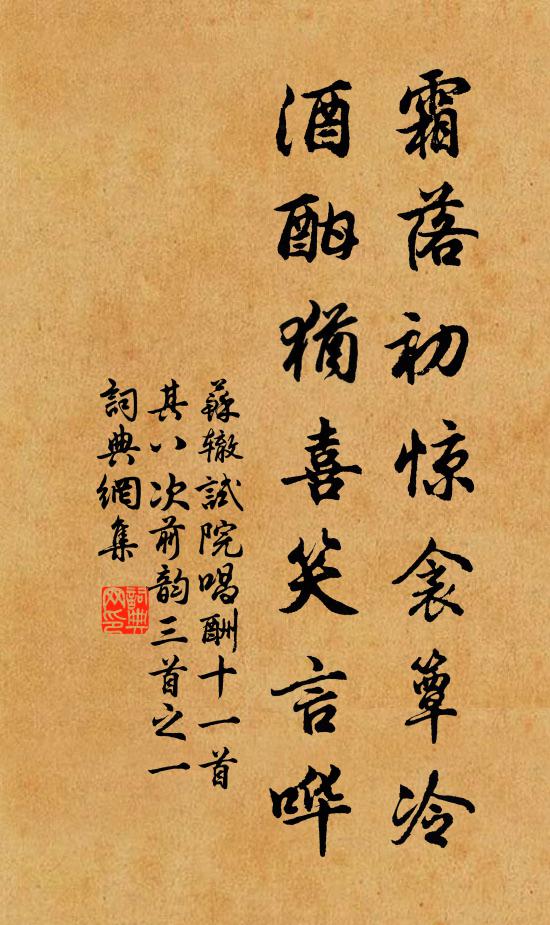 霜落初惊衾簟冷
酒酣犹喜笑言哗
蘇辙試院唱酬十一首
其八次前韵三首之一
詞典網集
詞典网印